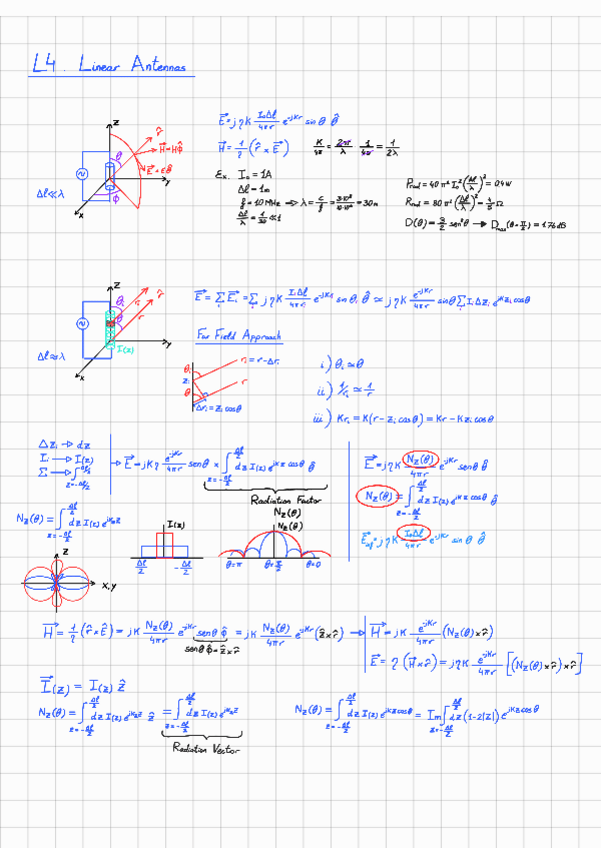 L4. Linear Antennas
E⃗ = jηK I₀Δl/4πr e^-jKr sin θ θ̂
H⃗ = 1/η (r̂ × E⃗)
K/4π = 2π/λ 1/4π = 1/2λ
z
r̂
θ
H⃗ = Hφ̂
E⃗ = Eθ̂
y
φ
x
Δl ≪ λ
Ex. I₀ = 1A
Δl = 1m
f = 10 MHz ⇒ λ = c/f = 3·10⁸/10·10⁶ = 30m
Δl/λ = 1/30 ≪ 1
P_rad = 40π² I₀² (Δl/λ)² = 0.4W
R_rad = 80π² (Δl/λ)² = 4/5 Ω
D(θ) = 3/2 sen²θ → D_max(θ=π/2) = 1.76dB
z
θᵢ
rᵢ
r̂
θ
r
I(z)
y
x
Δl ≈ λ
E⃗ = Σᵢ E⃗ᵢ = Σᵢ jηK IᵢΔl/4πrᵢ e^-jKrᵢ sin θᵢ θ̂ ≃ jηK e^-jKr/4πr sinθ Σᵢ IᵢΔzᵢ e^jKzᵢcosθ
Far Field Approach
θᵢ
rᵢ = r-Δrᵢ
zᵢ
θ
r
Δrᵢ = zᵢ cosθ
i) θᵢ ≃ θ
ii) 1/rᵢ ≃ 1/r
iii) Krᵢ = K(r-zᵢcosθ) = Kr-Kzᵢcosθ
Δzᵢ → dz
Iᵢ → I(z)
Σ → ∫_{z=-Δl/2}^{Δl/2}
→ E⃗ = jKη e^-jKr/4πr senθ × ∫_{z=-Δl/2}^{Δl/2} dz I(z) e^jKz cosθ θ̂
Radiation Factor
N_z(θ)
E⃗ = jηK N_z(θ)/4πr e^-jKr senθ θ̂
N_z(θ) = ∫_{z=-Δl/2}^{Δl/2} dz I(z) e^jKz cosθ θ̂
jηK I₀Δl/4πr e^-jKr sin θ θ̂
N_z(θ) = ∫_{z=-Δl/2}^{Δl/2} dz I(z) e^jK_z z
I(z)
Δl/2
-Δl/2
N_z(θ)
θ=π
θ=π/2
θ=0
z
x,y
H⃗ = 1/η (r̂ × E⃗) = jK N_z(θ)/4πr e^-jKr senθ φ̂ = jK N_z(θ)/4πr e^-jKr (ẑ × r̂) → H⃗ = jK e^-jKr/4πr (N_z(θ) × r̂)
senθ φ̂ = ẑ × r̂
E⃗ = η (H⃗ × r̂) = jηK e^-jKr/4πr [(N_z(θ) × r̂) × r̂]
I⃗(z) = I(z) ẑ
N_z(θ) = ∫_{z=-Δl/2}^{Δl/2} dz I(z) e^jK_z z ẑ = ∫_{z=-Δl/2}^{Δl/2} dz I(z) e^jK_z z
Radiation Vector
N_z(θ) = ∫_{z=-Δl/2}^{Δl/2} dz I(z) e^jKz cosθ = Im ∫_{z=-Δl/2}^{Δl/2} dz (1-2|z|) e^jKz cosθ